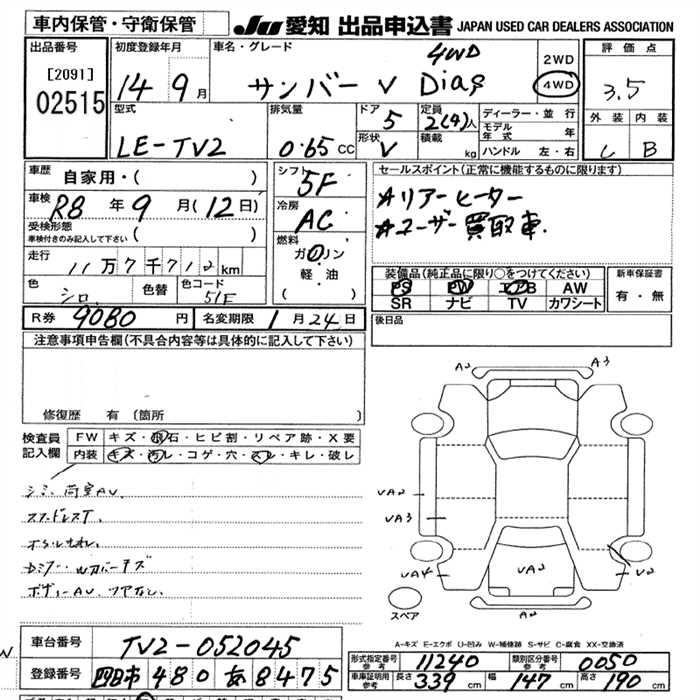 車内保管・守衛保管
JU 愛知 出品申込書 JAPAN USED CAR DEALERS ASSOCIATION
出品番号
[2091]
02515
初度登録年月
14 9月
車名・グレード
サンバー V Dias 4WD
2WD
4WD
評価点
3.5
外装 内装
B
型式
LE-TV2
排気量
0.65 CC
ドア
5
形状
V
定員
2(4)人
積載
kg
ディーラー・並行
モデル年式 年
ハンドル 左・右
車歴
自家用・( )
車検
R8 年 9 月 (12日)
受検形態
車検付きのみ記入して下さい ( )
走行
11万7千712km
色
シロ
色替
色コード
51F
シフト
5F
冷房
AC
燃料
ガソリン
・
軽・油
( )
セールスポイント(正常に機能するものに限ります)
☆リアーヒーター
☆ユーザー買取車.
装備品(純正品に限り○をつけてください)
PS PW エアB AW
SR ナビ TV カワシート
新車保証書
有・無
R券 9080 円 名変期限 1月24日
後日品
注意事項申告欄(不具合内容等は具体的に記入して下さい)
修復歴 有 (箇所 )
検査員記入欄
FW キズ・飛石・ヒビ割・リペア跡・X要
内装 キズ・汚レ・コゲ・穴・スレ・キレ・破レ
シミ、荷室AV
スタッドレスT.
ボディーAV、ツヤなし.
A2 A3
VA2
VA3
VA4
VA2
V2
A2
スペア
A-キズ E-エクボ U-凹み W-補修跡 S-サビ C-腐食 XX-交換済
車台番号 TV2-052045
登録番号 四日市 480 あ 8475
形式指定番号 参考 11240 類別区分番号 参考 0050
車庫証明用 参考 長さ 339 cm 幅 147 cm 高さ 190 cm